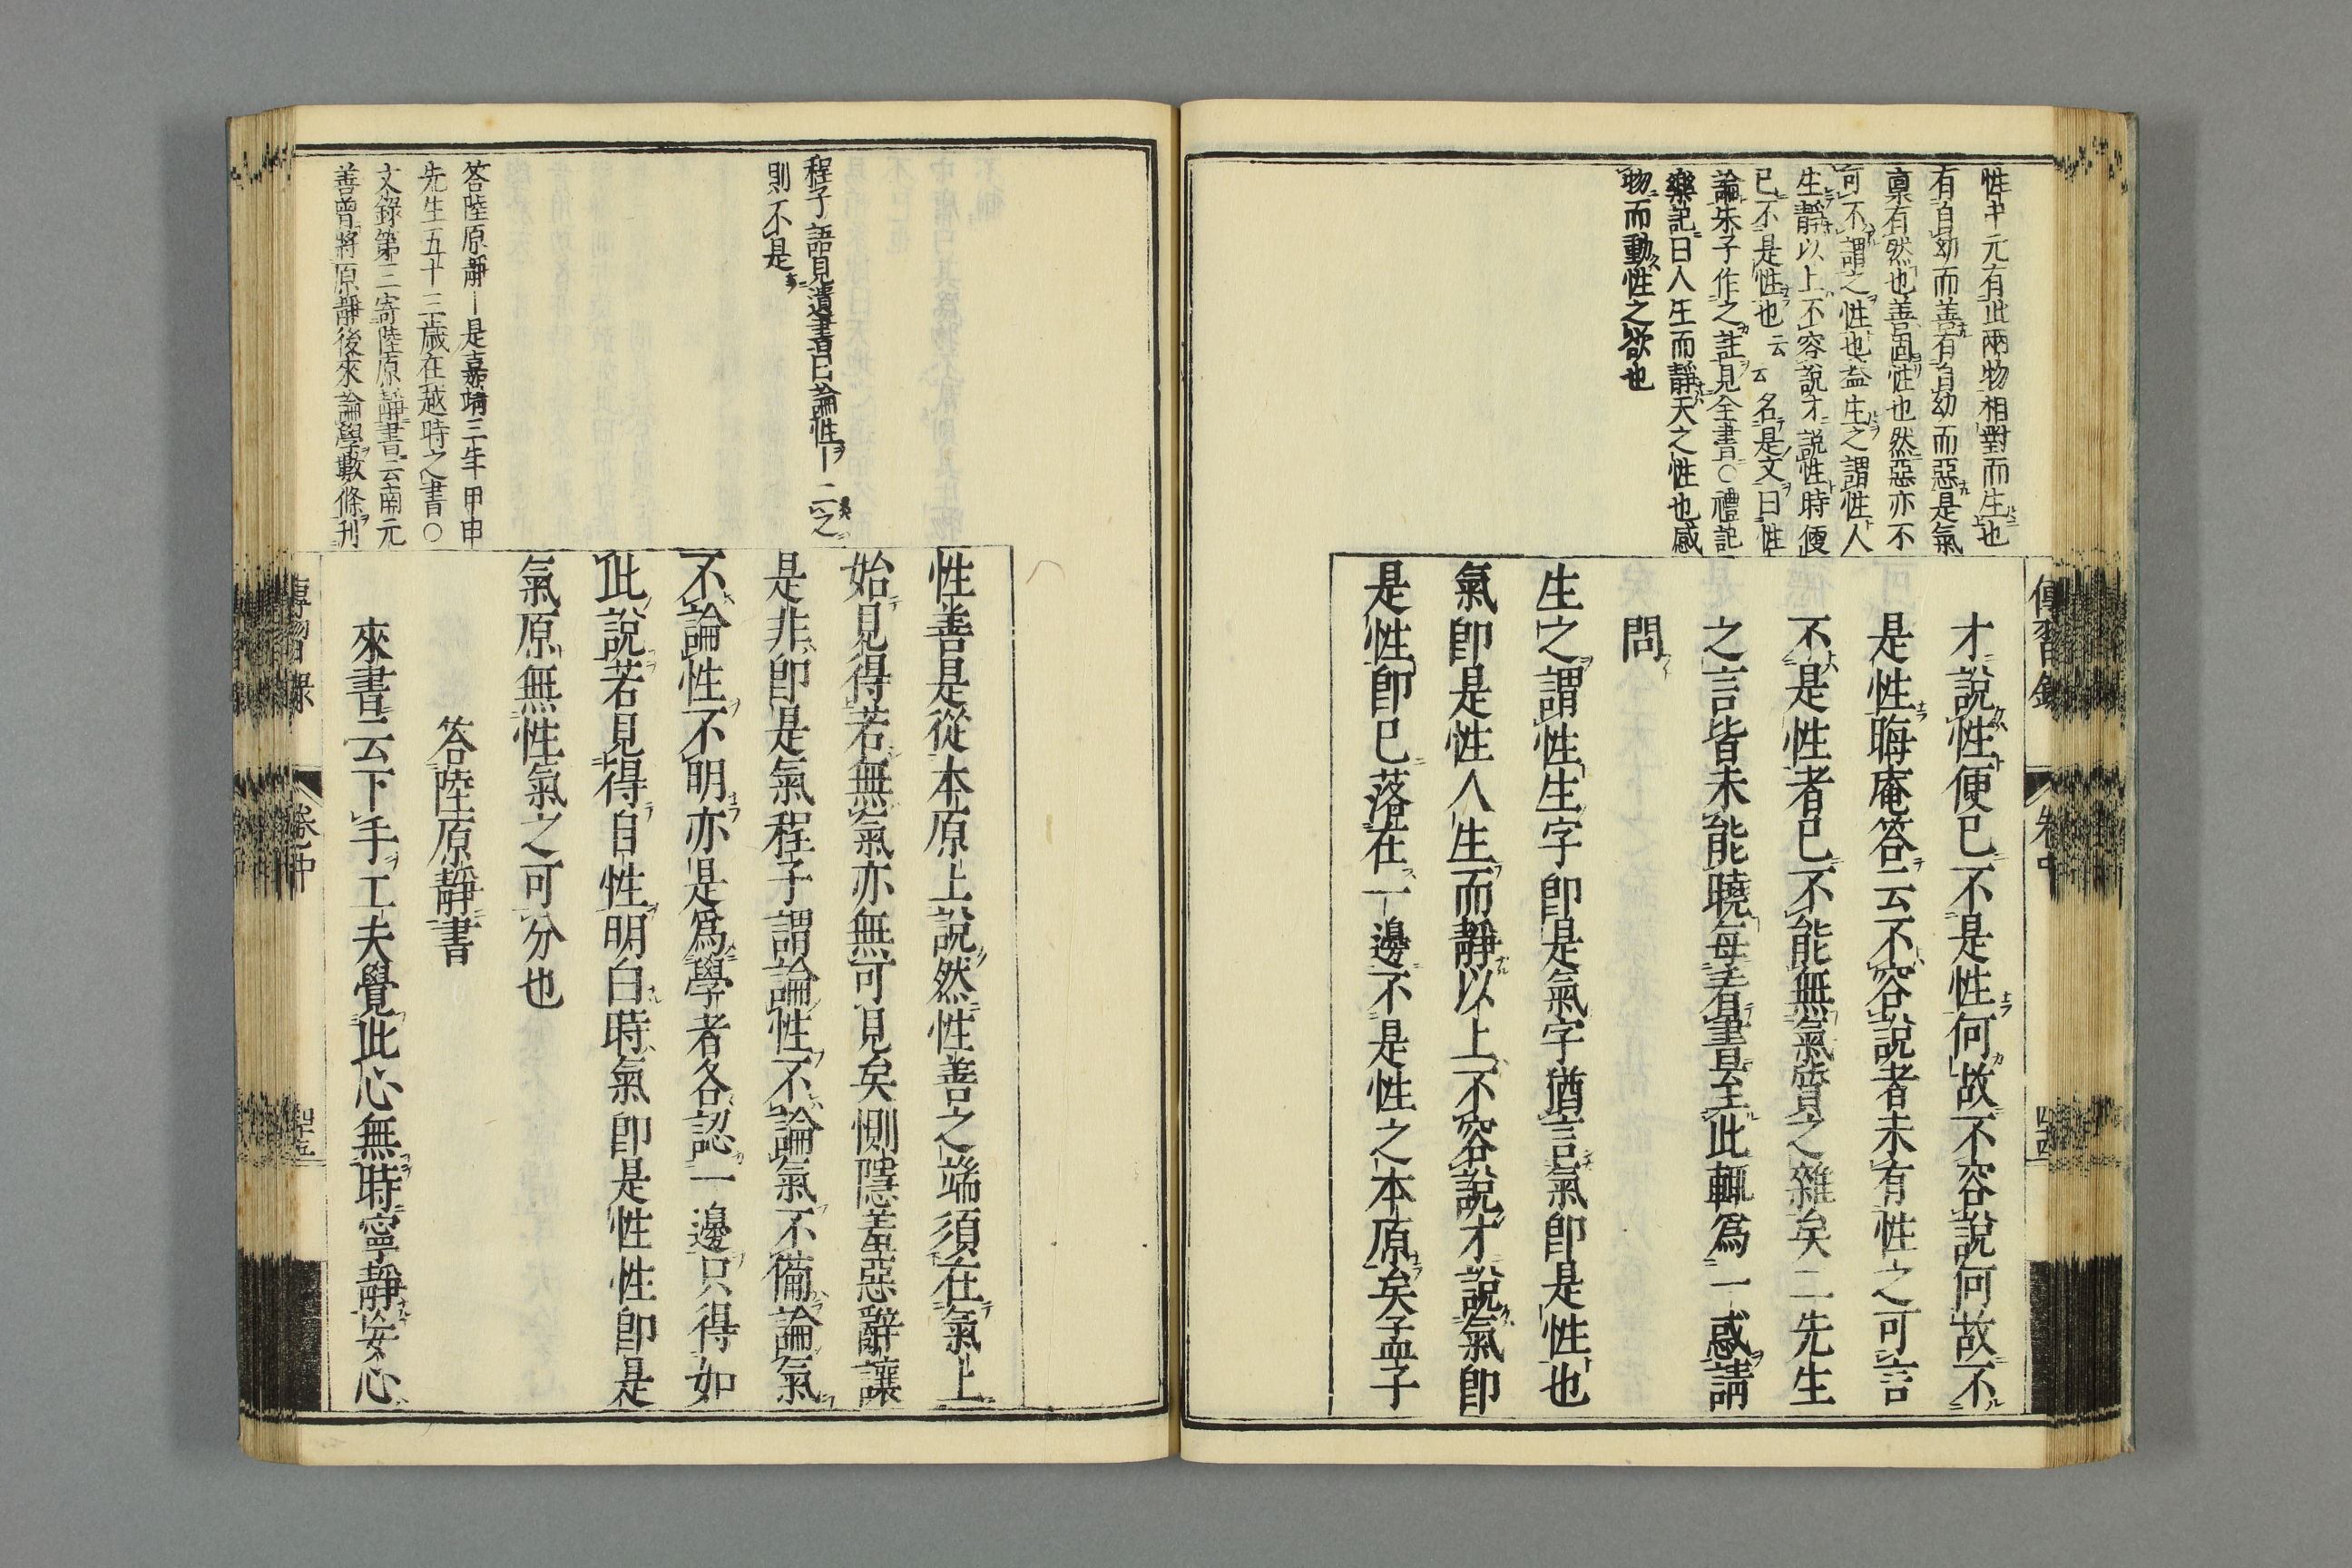 性中元有此兩物相對而生也
有自幼而善有自幼而惡是氣
稟有然也善固性也然惡亦不
可不謂之性也蓋生之謂性人
生靜以上不容說才說性時便
已不是性也云云名是文曰性
論朱子作之註見全書○禮記
樂記曰人生而靜天之性也感
物而動性之欲也
傳習錄
卷中
四十四
才說性便已不是性何故不容說何故不
是性晦庵答云不容說者未有性之可言
不是性者已不能無氣質之雜矣二先生
之言皆未能曉每看書至此輒爲一惑請
問
生之謂性生字卽是氣字猶言氣卽是性也
氣卽是性人生而靜以上不容說才說氣卽
是性卽已落在一邊不是性之本原矣孟子
程子語見遺書已論性ー二之
則不是
答陸原靜ー是嘉靖三年甲申
先生五十三歲在越時之書○
文錄第三寄陸原靜書云南元
善曾將原靜後來論學數條刊
性善是從本原上說然性善之端須在氣上
始見得若無氣亦無可見矣惻隱羞惡辭讓
是非卽是氣程子謂論性不論氣不備論氣
不論性不明亦是爲學者各認一邊只得如
此說若見得自性明白時氣卽是性性卽是
氣原無性氣之可分也
答陸原靜書
來書云下手工夫覺此心無時寧靜妄心
傳習錄
卷中
四十五